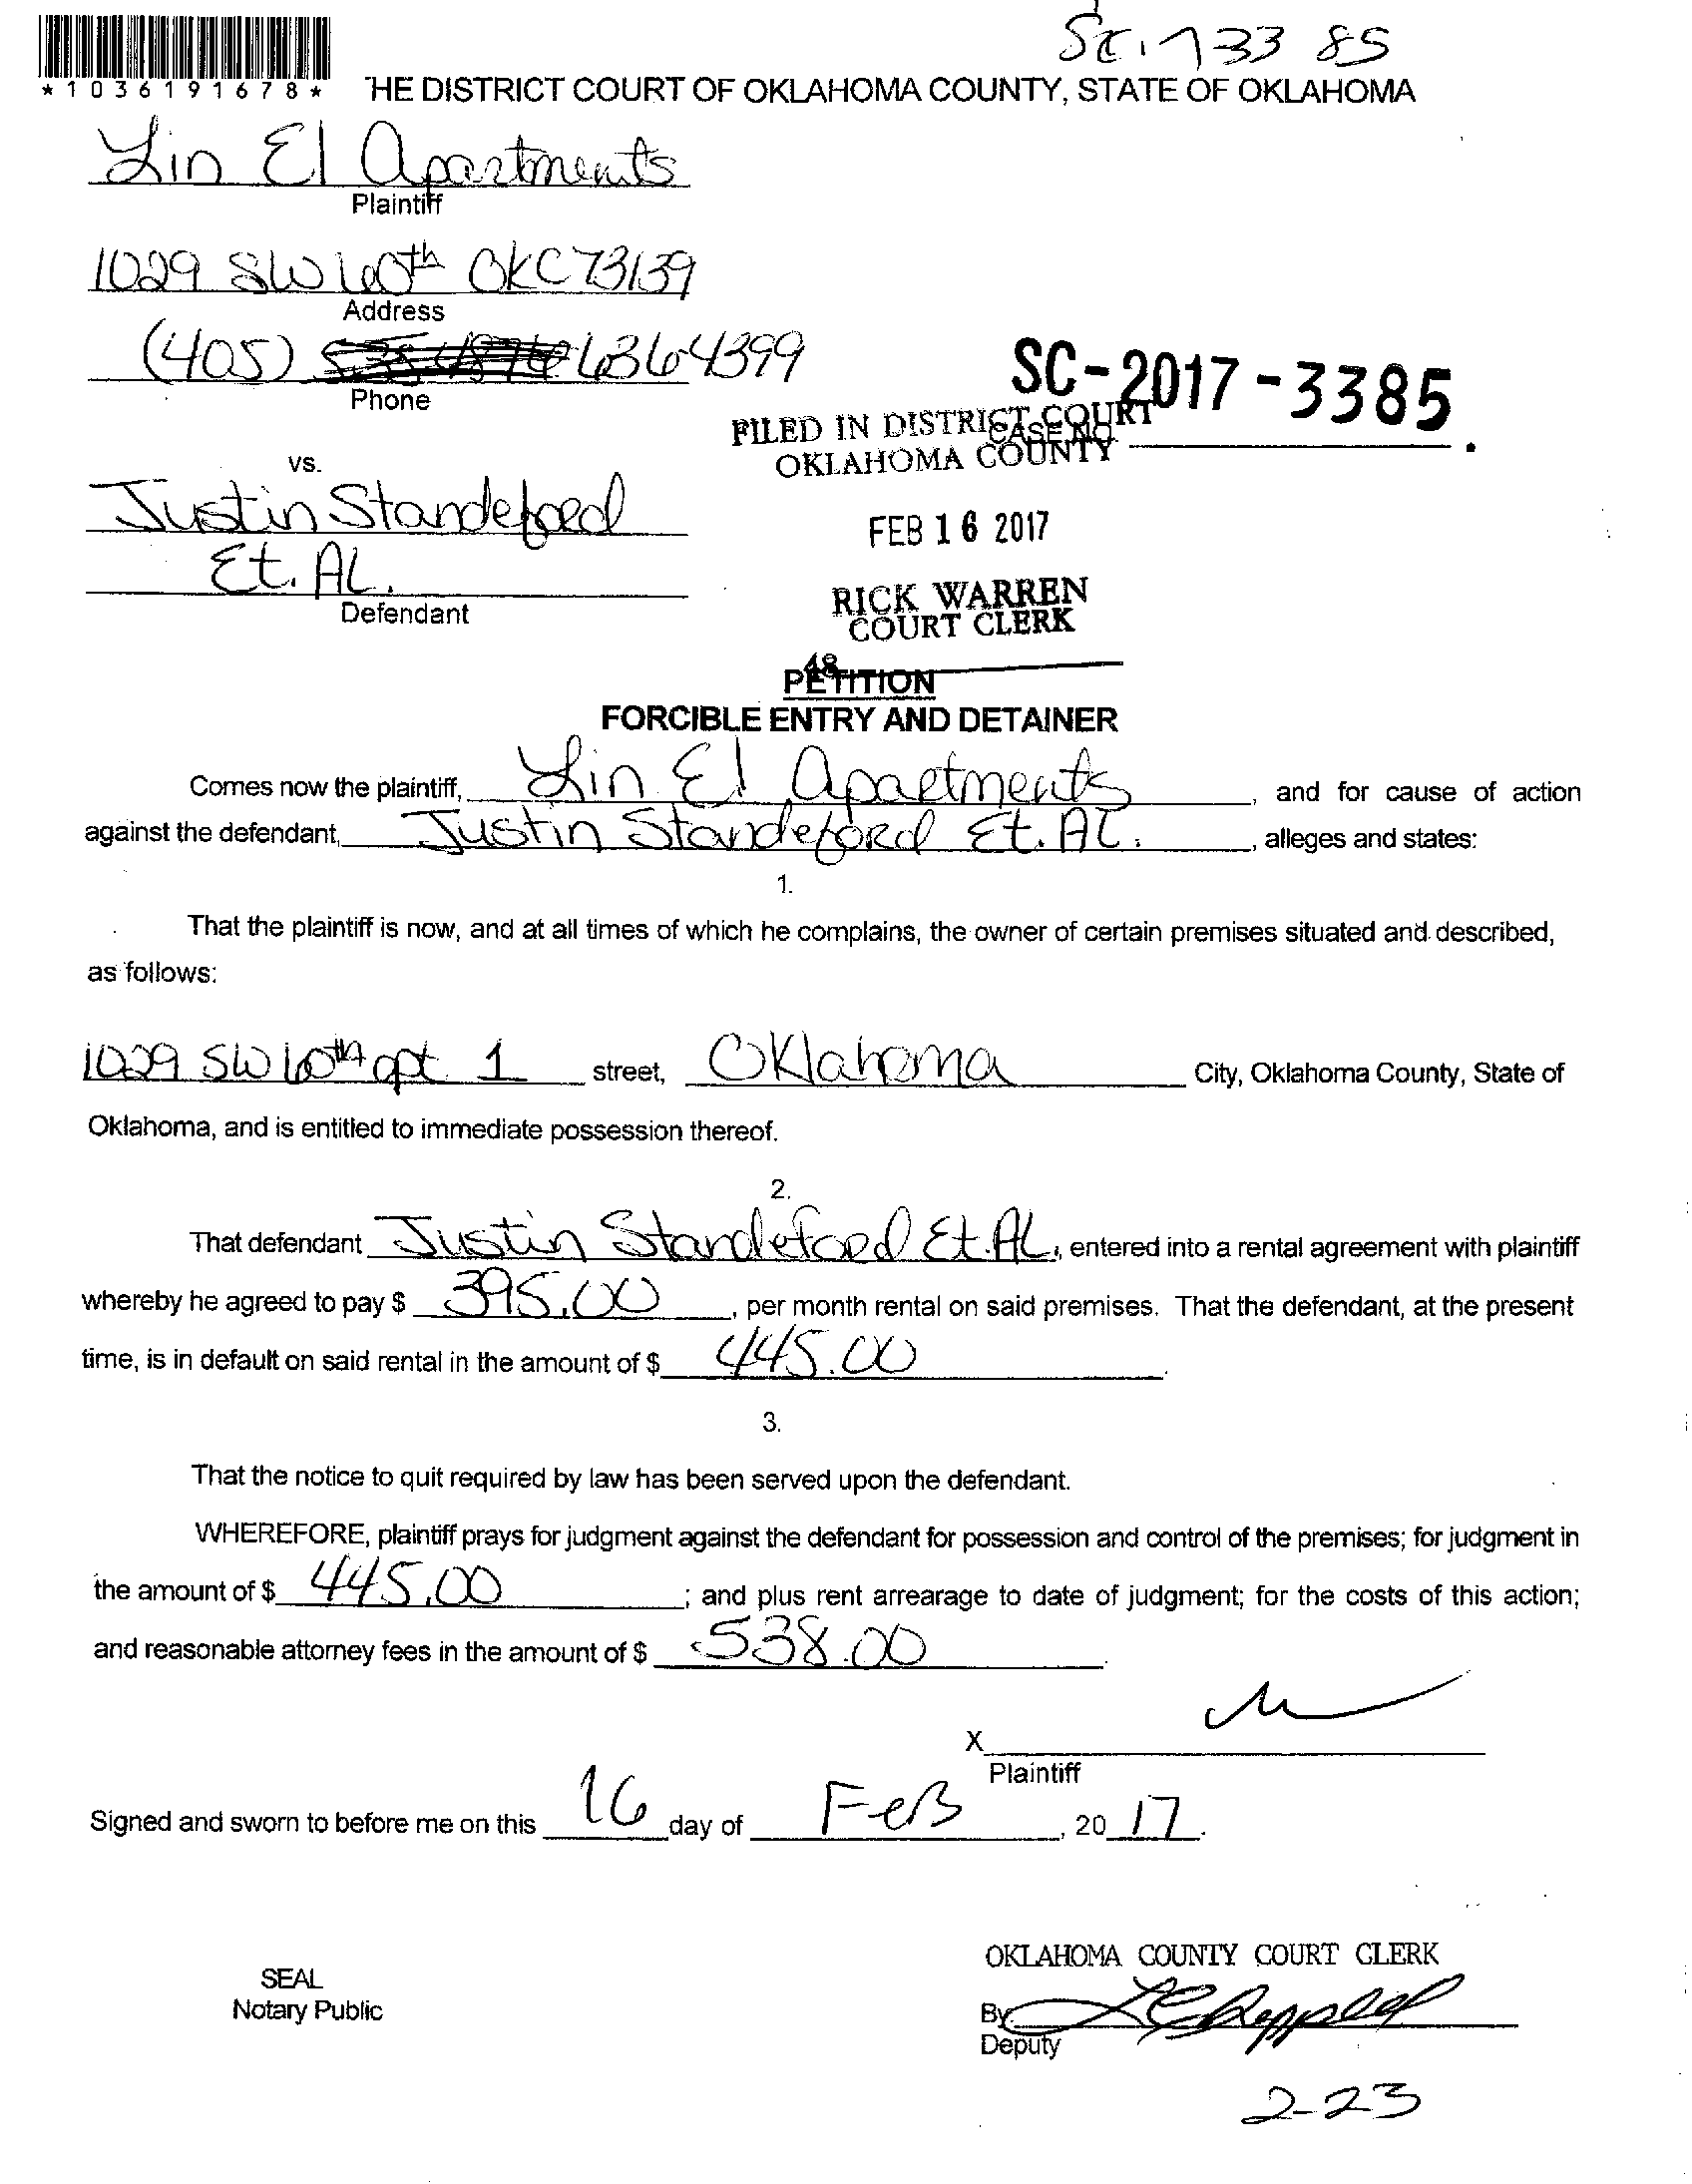 SC-17 33 85
*1036191678*
THE DISTRICT COURT OF OKLAHOMA COUNTY, STATE OF OKLAHOMA
Lin El Apartments
Plaintiff
1029 SW 60th OKC 73139
Address
(405) 636-4399
Phone
SC-2017-3385
FILED IN DISTRICT COURT
CASE NO.
OKLAHOMA COUNTY
vs.
Justin Standeford
FEB 16 2017
Et. AL.
RICK WARREN
COURT CLERK
Defendant
48
PETITION
FORCIBLE ENTRY AND DETAINER
Comes now the plaintiff, Lin El Apartments, and for cause of action
against the defendant, Justin Standeford Et. AL., alleges and states:
1.
That the plaintiff is now, and at all times of which he complains, the owner of certain premises situated and described,
as follows:
1029 SW 60th apt 1 street, Oklahoma City, Oklahoma County, State of
Oklahoma, and is entitled to immediate possession thereof.
2.
That defendant Justin Standeford Et. AL., entered into a rental agreement with plaintiff
whereby he agreed to pay $ 395.00, per month rental on said premises. That the defendant, at the present
time, is in default on said rental in the amount of $ 445.00.
3.
That the notice to quit required by law has been served upon the defendant.
WHEREFORE, plaintiff prays for judgment against the defendant for possession and control of the premises; for judgment in
the amount of $ 445.00; and plus rent arrearage to date of judgment; for the costs of this action;
and reasonable attorney fees in the amount of $ 538.00.
X
Plaintiff
Signed and sworn to before me on this 16 day of FeB, 20 17.
OKLAHOMA COUNTY COURT CLERK
SEAL
Notary Public
By
Deputy
2-23